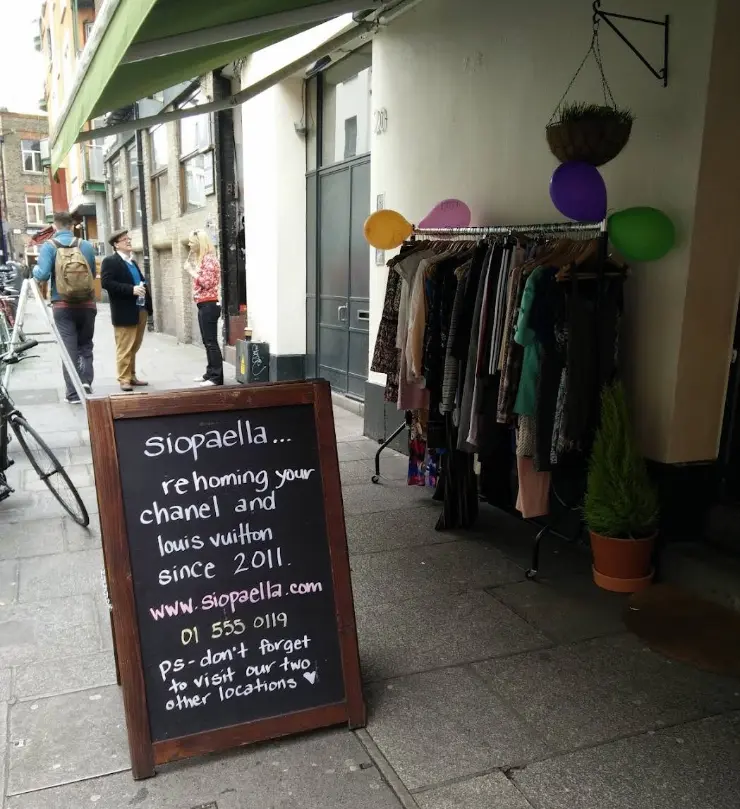 siopaella...
rehoming your
chanel and
louis vuitton
since 2011.
www.siopaella.com
01 555 0119
ps-don't forget
to visit our two
other locations ♥